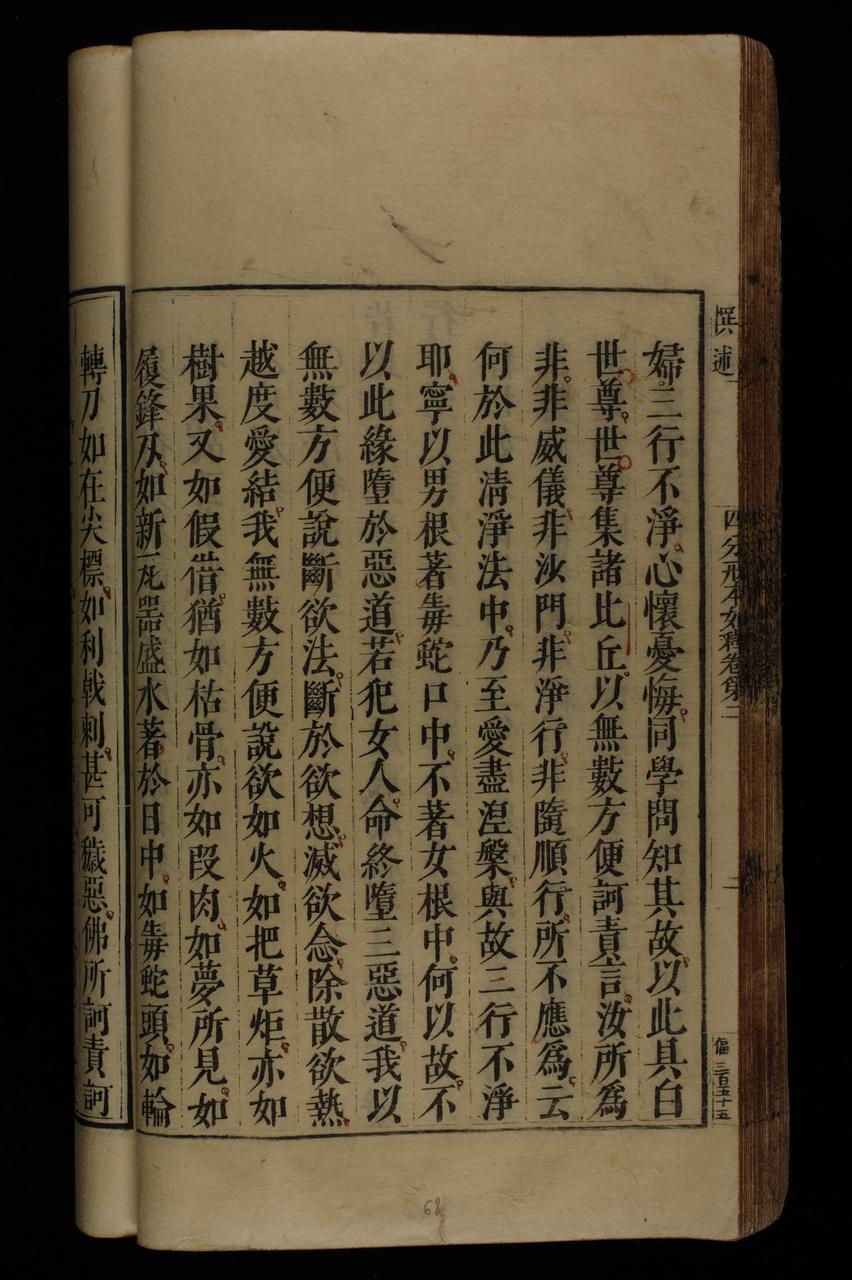 撰述
四分戒本如釋卷第二
二
傷三百五十五
婦三行不淨心懷憂悔同學問知其故以此具白
世尊世尊集諸比丘以無數方便訶責言汝所為
非非威儀非沙門非淨行非隨順行所不應為云
何於此清淨法中乃至愛盡涅槃與故三行不淨
耶寧以男根著毒蛇口中不著女根中何以故不
以此緣墮於惡道若犯女人命終墮三惡道我以
無數方便說斷欲法斷於欲想滅欲念除散欲熱
越度愛結我無數方便說欲如火如把草炬亦如
樹果又如假借猶如枯骨亦如段肉如夢所見如
履鋒刃如新瓦器盛水著於日中如毒蛇頭如輪
轉刀如在尖標如利戟刺甚可穢惡佛所訶責訶
68